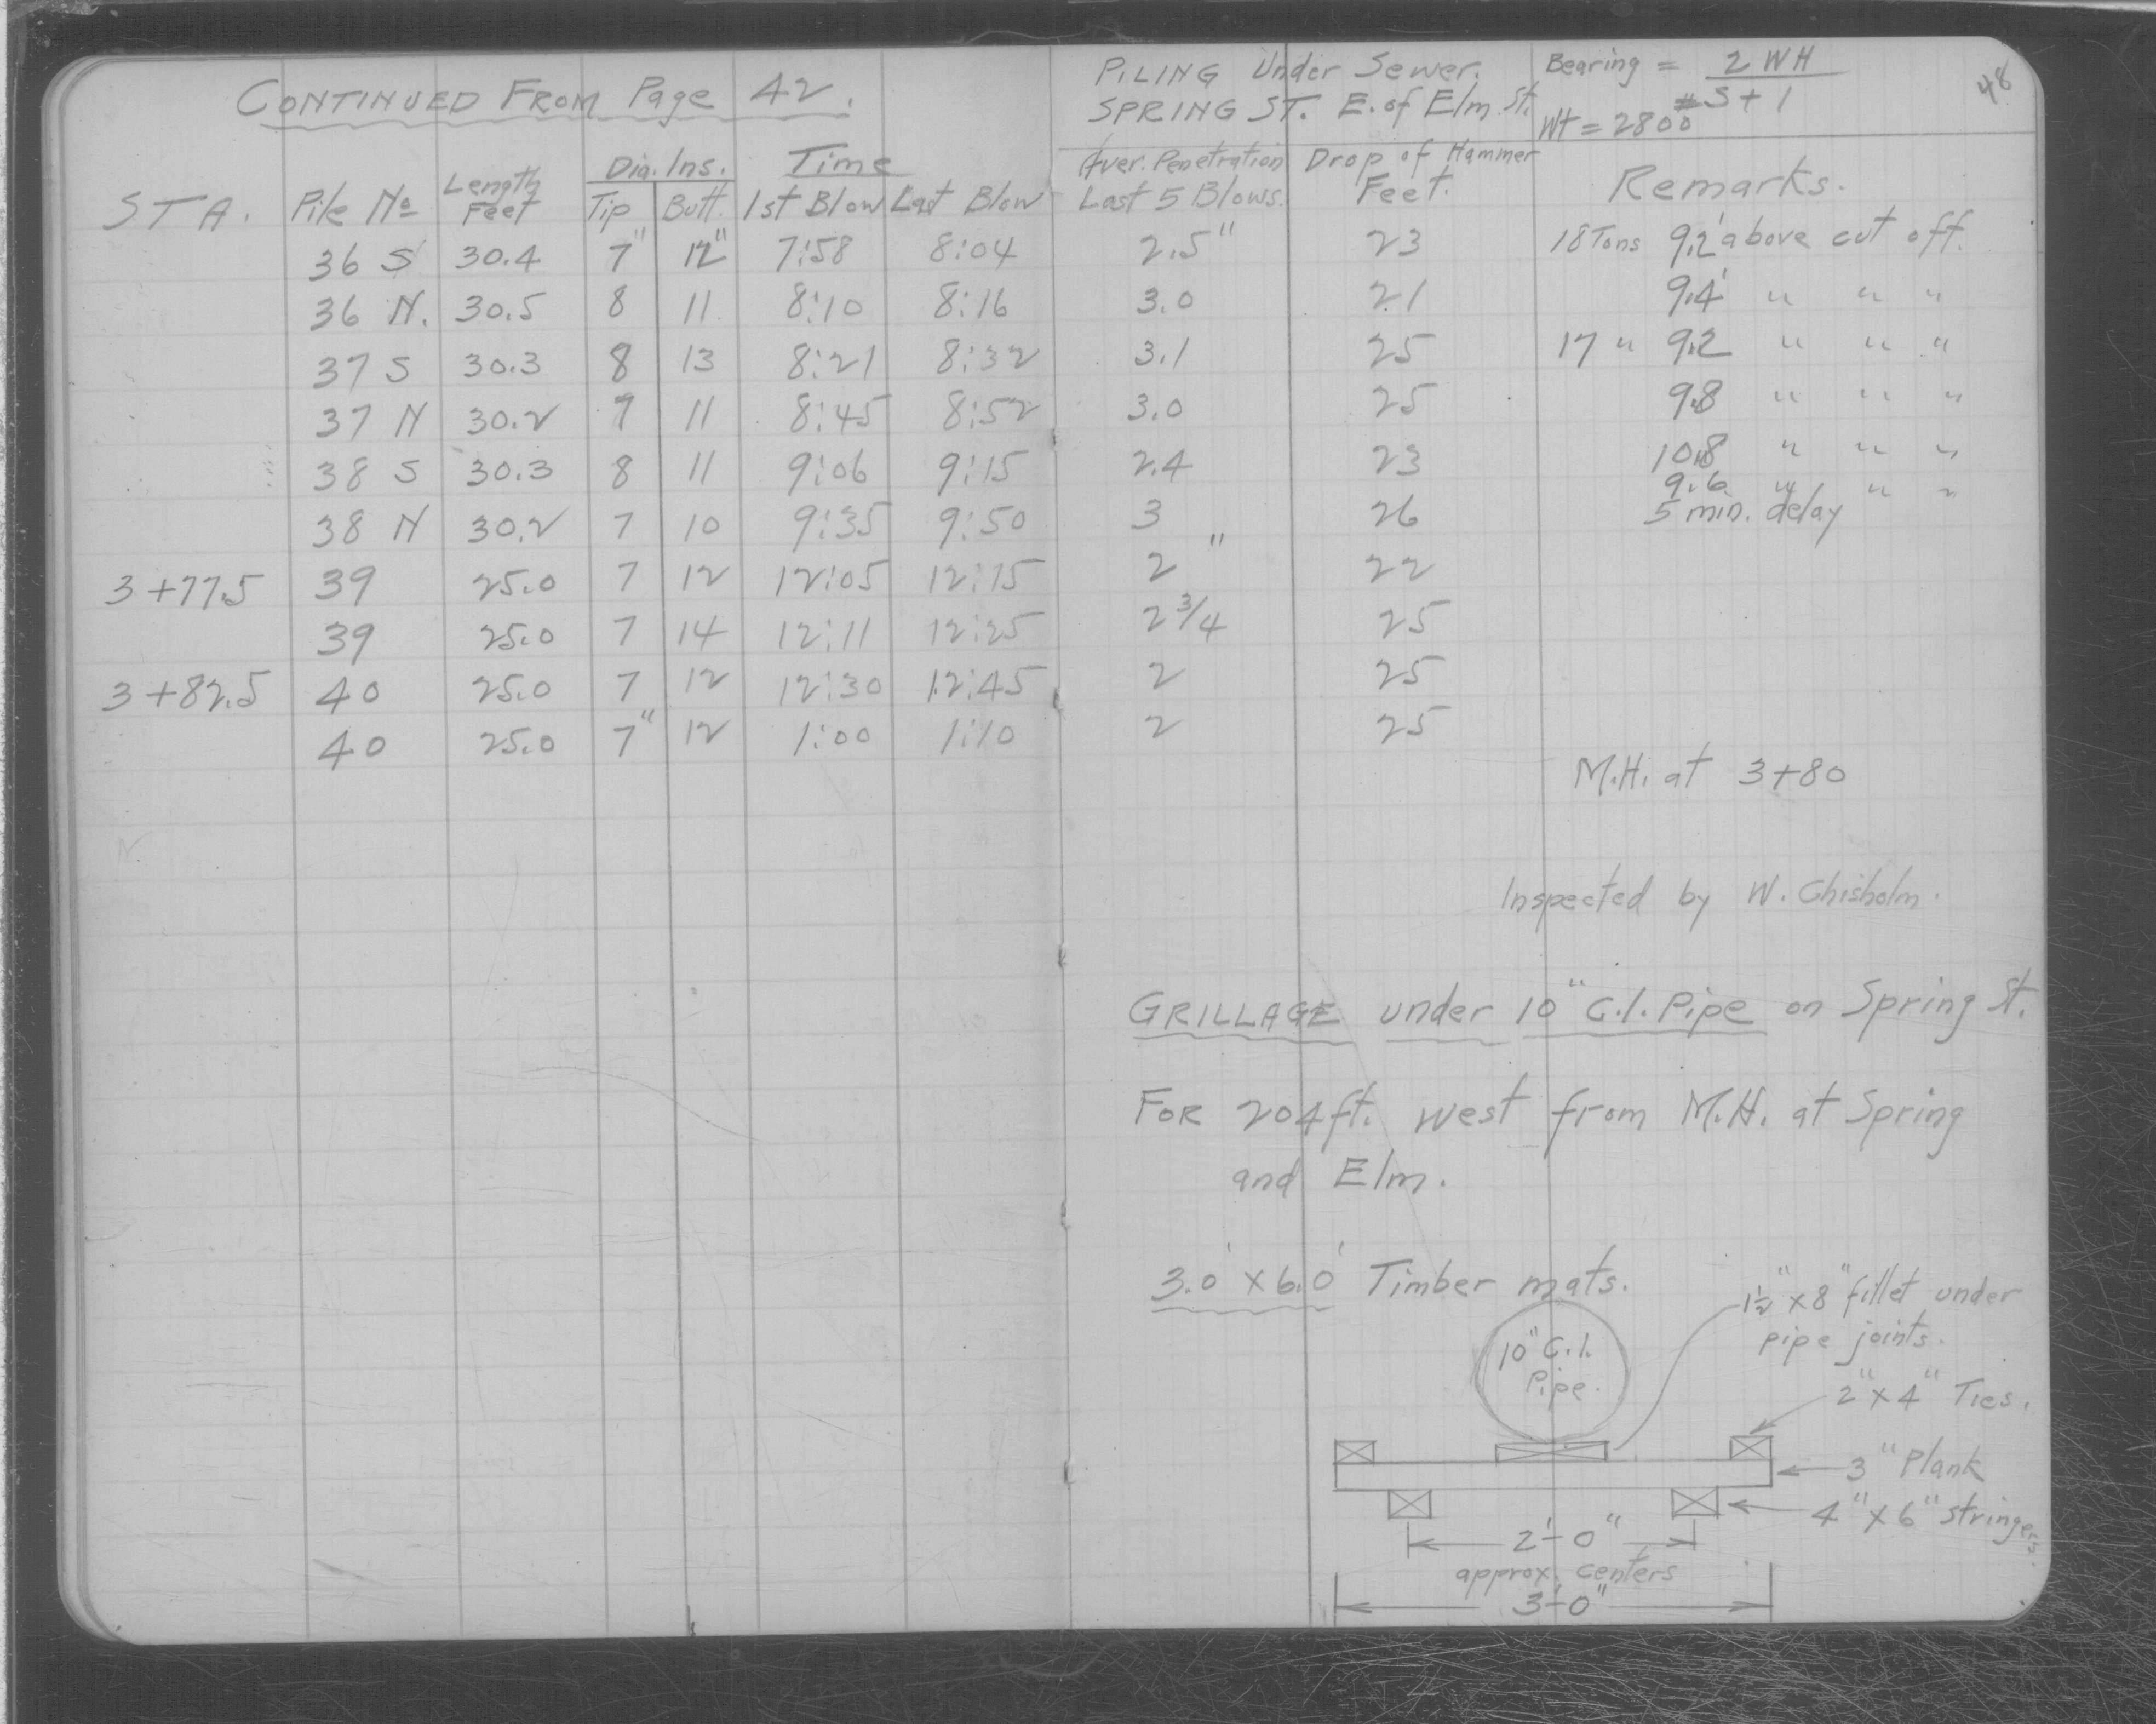 CONTINUED FROM Page 42.
PILING Under Sewer.
SPRING ST. E. of Elm St.
Bearing = 2 WH / S + 1
Wt = 2800#
48
STA. Pile No Length Feet Dia. Ins. Tip Butt. Time 1st Blow Last Blow Aver. Penetration Last 5 Blows. Drop of Hammer Feet. Remarks.
36 S 30.4 7" 12" 7:58 8:04 2.5" 23 18 Tons 9.2' above cut off.
36 N. 30.5 8 11 8:10 8:16 3.0 21 9.4' " " "
37 S 30.3 8 13 8:21 8:32 3.1 25 17 " 9.2 " " "
37 N 30.2 9 11 8:45 8:52 3.0 25 9.8 " " "
38 S 30.3 8 11 9:06 9:15 2.4 23 10.8 " " "
38 N 30.2 7 10 9:35 9:50 3 26 9.6 " " "
5 min. delay
3+77.5 39 25.0 7 12 12:05 12:15 2" 22
39 25.0 7 14 12:11 12:25 2 3/4 25
3+82.5 40 25.0 7 12 12:30 12:45 2 25
40 25.0 7" 12 1:00 1:10 2 25
M.H. at 3+80
Inspected by W. Chisholm.
GRILLAGE under 10" C.I. Pipe on Spring St.
FOR 204 ft. west from M.H. at Spring
and Elm.
3.0' x 6.0' Timber mats.
1½" x 8" fillet under
pipe joints.
10" C.I.
Pipe.
2" x 4" Ties.
3" Plank
4" x 6" stringers.
2'-0"
approx. centers
3'-0"